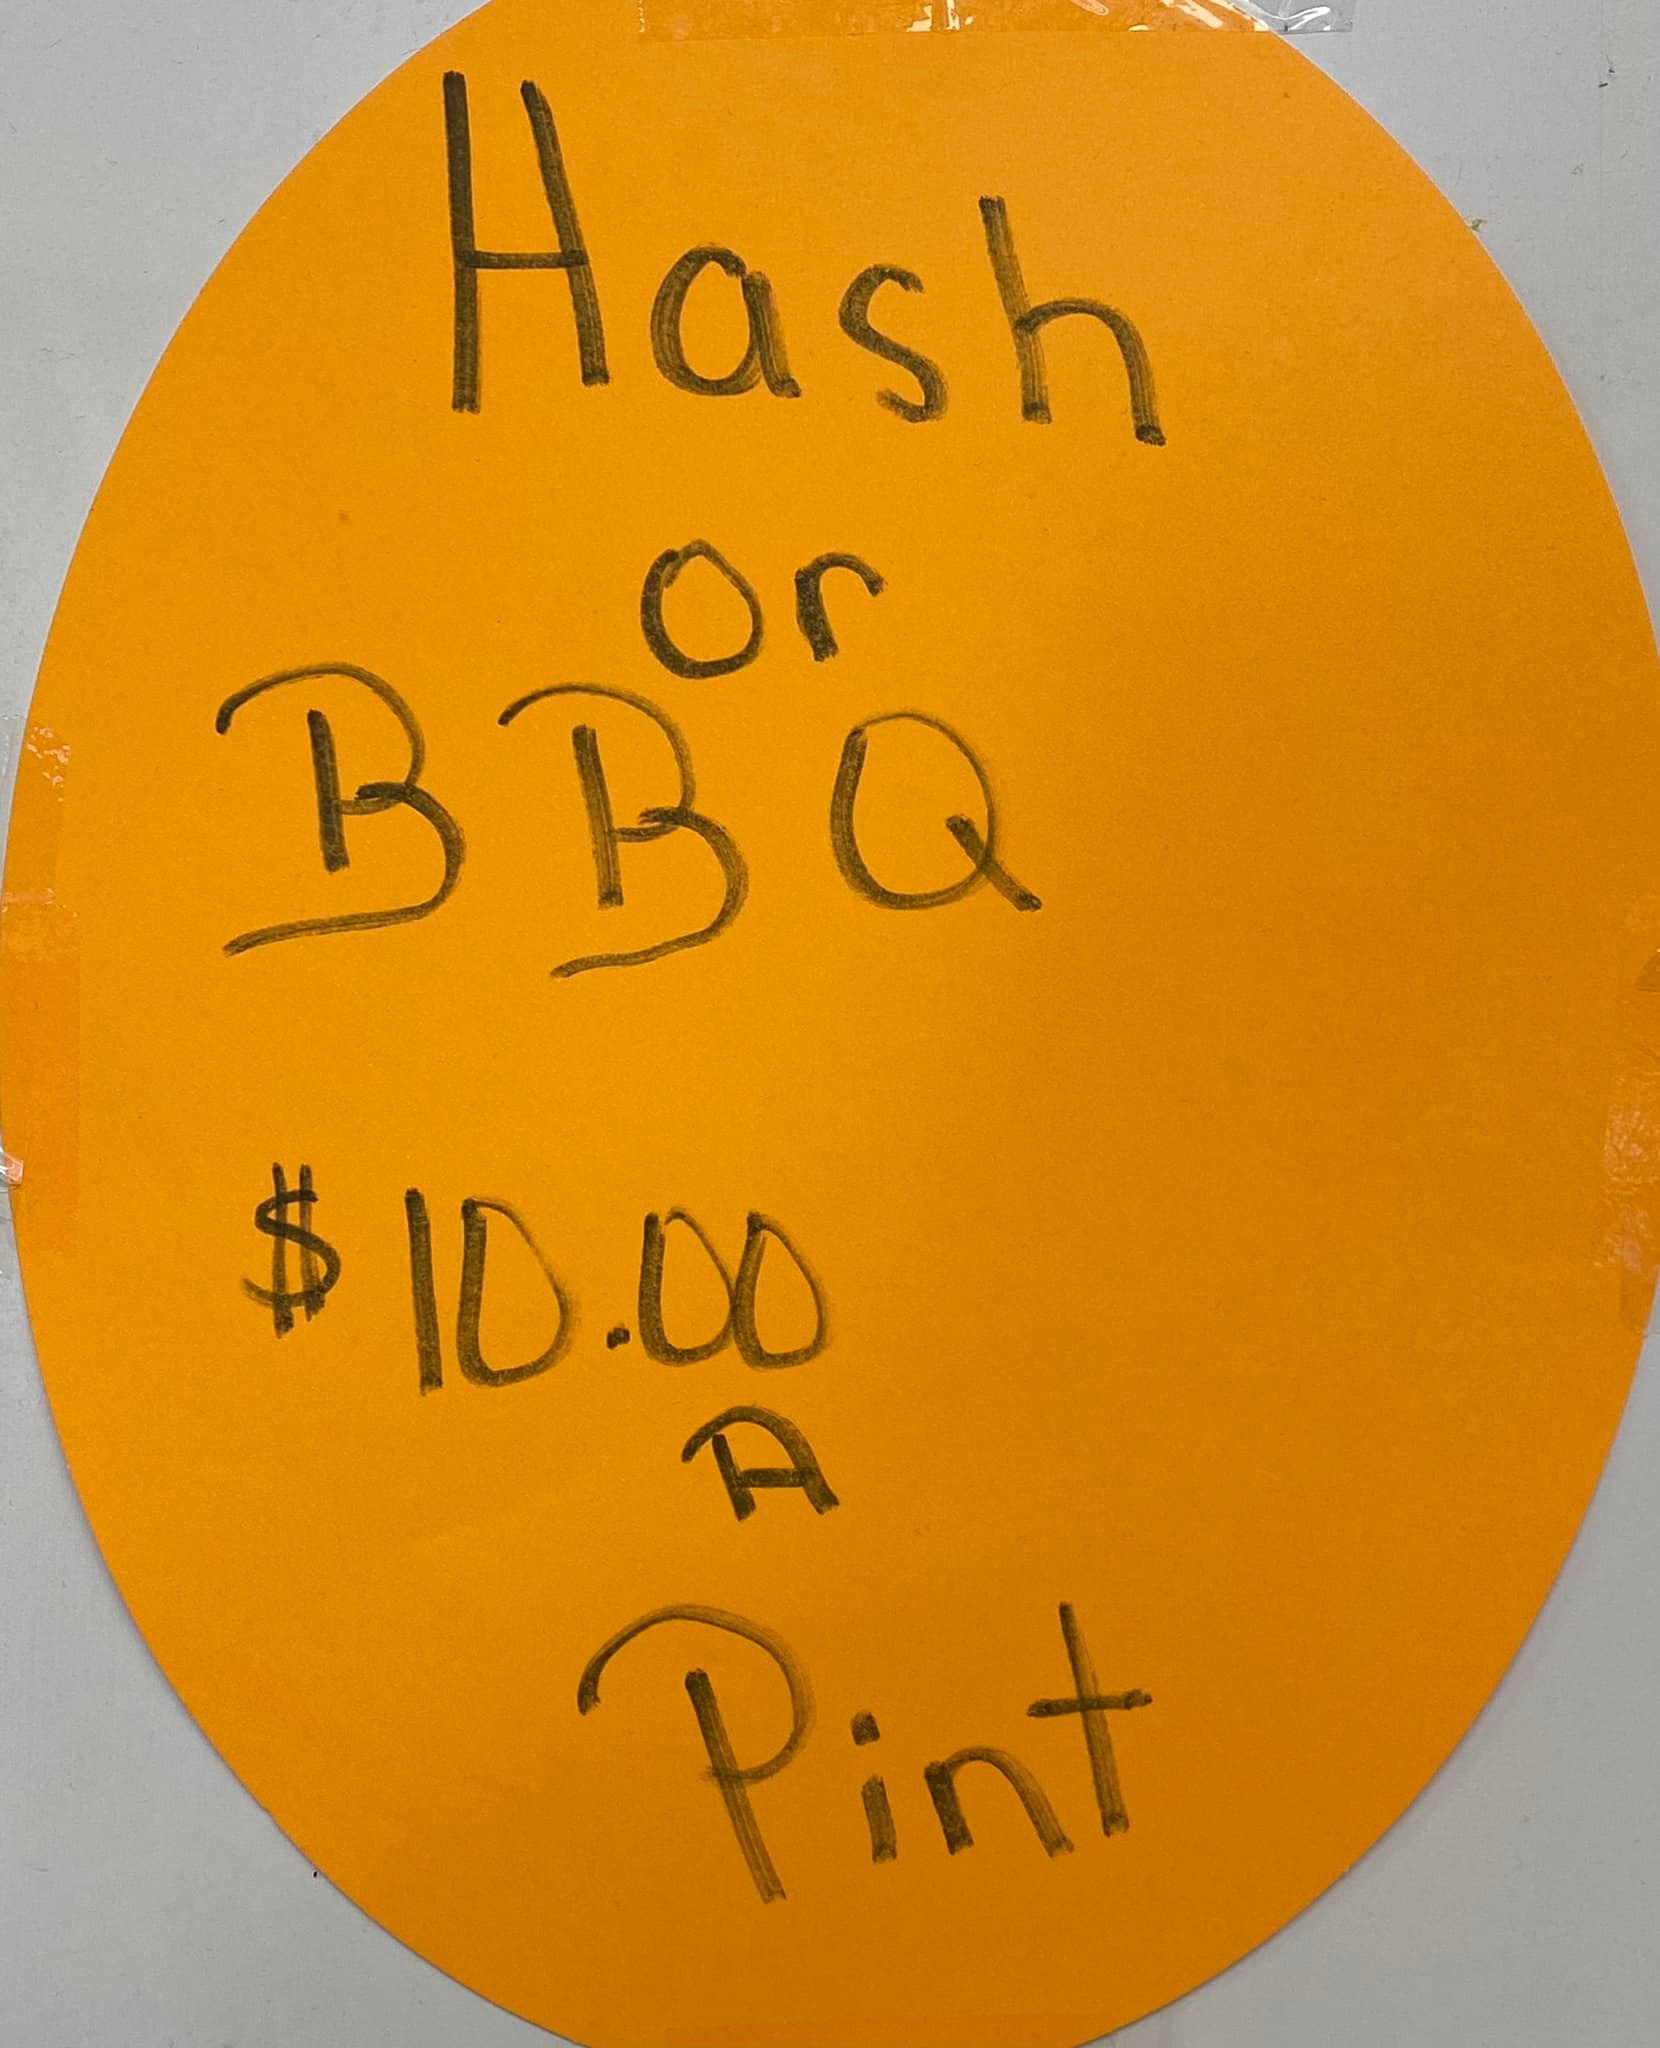 Hash
or
BBQ
$10.00
A
Pint